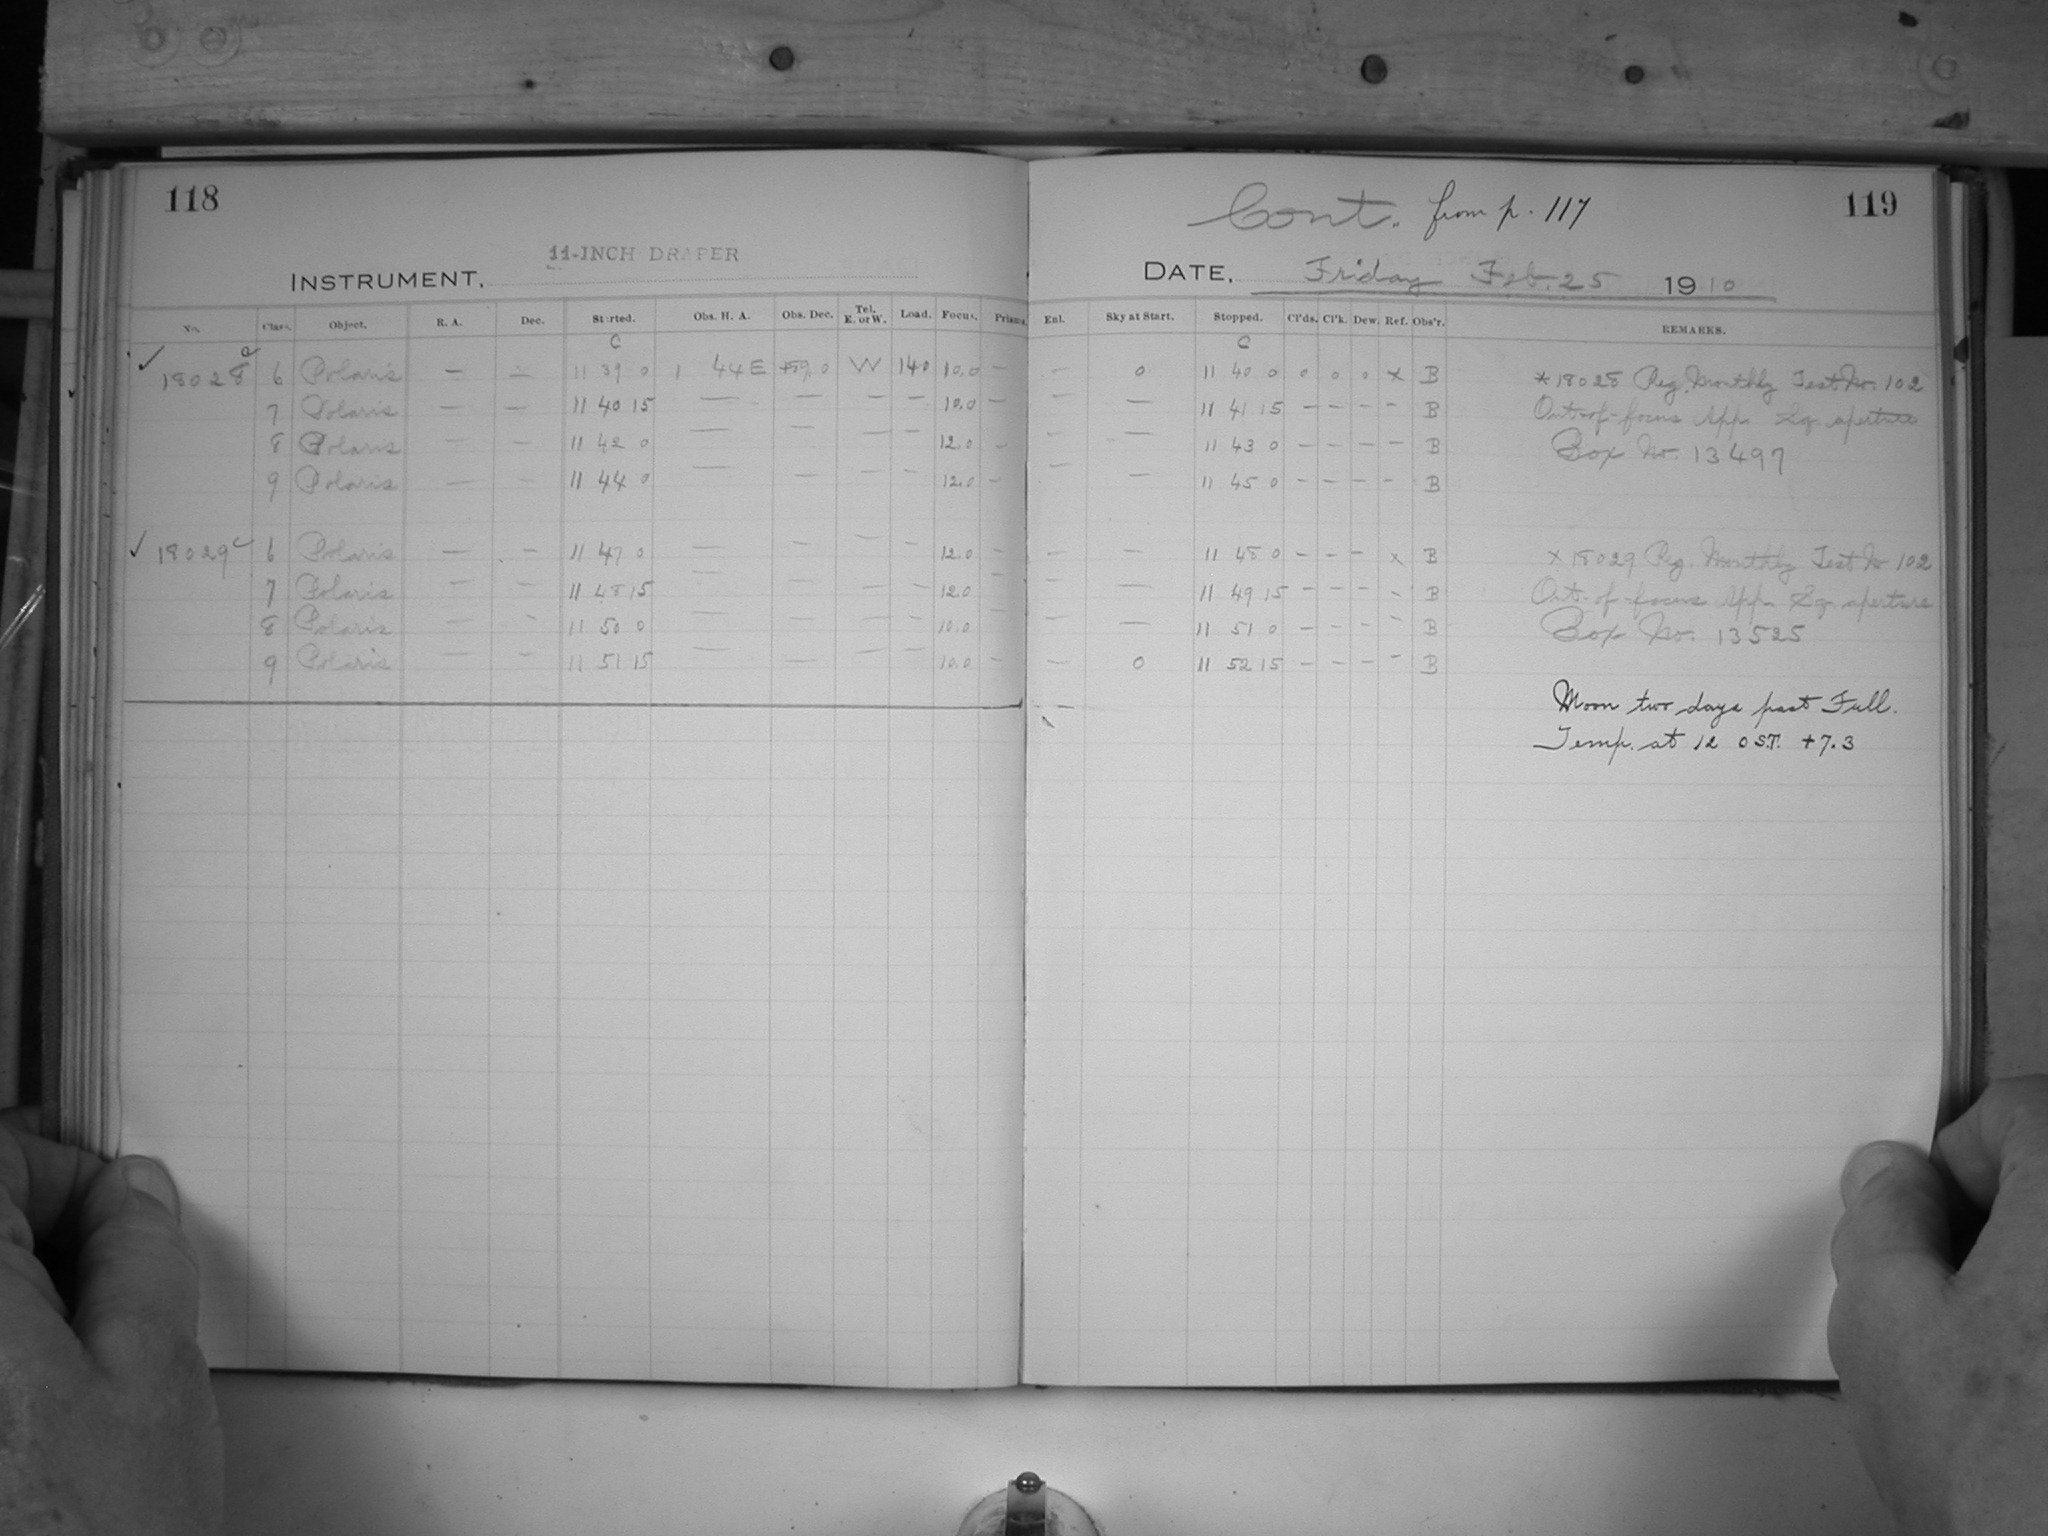 118
11-INCH DRAPER
INSTRUMENT,
No. Class. Object. R. A. Dec. Started. Obs. H. A. Obs. Dec. Tel. E. or W. Load. Focus. Prisms.
C
✓ 18028 c 6 Polaris — — 11 39 0 1 44 E +89.0 W 140 10.0 —
7 Polaris — — 11 40 15 — — — — 10.0 —
8 Polaris — — 11 42 0 — — — — 12.0 —
9 Polaris — — 11 44 0 — — — — 12.0 —
✓ 18029 c 6 Polaris — — 11 47 0 — — — — 12.0 —
7 Polaris — — 11 48 15 — — — — 12.0 —
8 Polaris — — 11 50 0 — — — — 10.0 —
9 Polaris — — 11 51 15 — — — — 10.0 —
Cont. from p. 117
119
DATE, Friday Feb. 25 1910
Enl. Sky at Start. Stopped. Cl'ds. Cl'k. Dew. Ref. Obs'r. REMARKS.
C
— 0 11 40 0 0 0 0 x B *18028 Reg. Monthly Test No. 102
— — 11 41 15 — — — — B Out-of-focus App. Sq. aperture
— — 11 43 0 — — — — B Box No. 13497
— — 11 45 0 — — — — B
— — 11 48 0 — — — x B x 18029 Reg. Monthly Test No 102
— — 11 49 15 — — — — B Out-of-focus App. Sq. aperture
— — 11 51 0 — — — — B Box No. 13525
— 0 11 52 15 — — — — B
Moon two days past Full.
Temp. at 12 0 S.T. +7.3